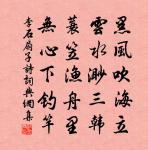 黑風吹海立
雲水渺三韓
蓑笠漁舟星
無心下釣竿
李石扇子詩詞典網集